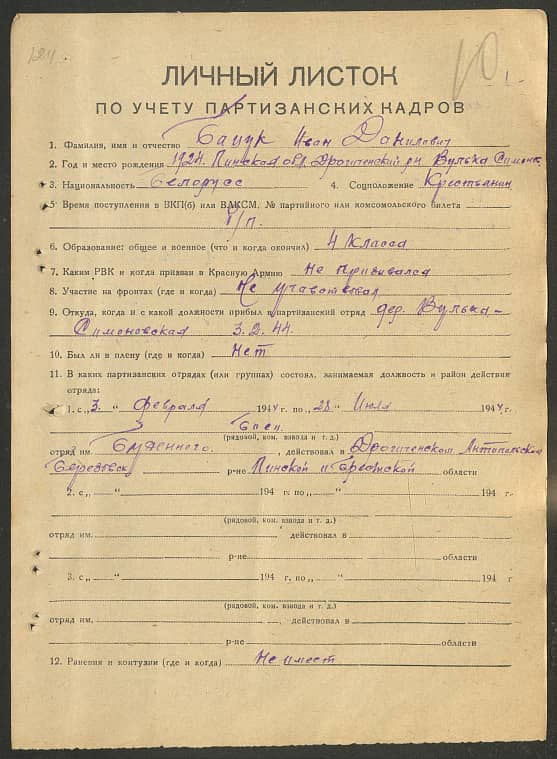 ЛИЧНЫЙ ЛИСТОК
ПО УЧЕТУ ПАРТИЗАНСКИХ КАДРОВ
1. Фамилия, имя и отчество Бацук Иван Данилович
2. Год и место рождения 1924. Пинская обл. Дрогиченский рн Вулька Симонов
3. Национальность Белорусс 4. Соцположение Крестьянин
5. Время поступления в ВКП(б) или ВЛКСМ, № партийного или комсомольского билета
б/п.
6. Образование: общее и военное (что и когда окончил) 4 класса
7. Каким РВК и когда призван в Красную Армию Не призывался
8. Участие на фронтах (где и когда) Не учавствовал
9. Откуда, когда и с какой должности прибыл в партизанский отряд дер. Вулька-
Симоновская 3.2.44.
10. Был ли в плену (где и когда) Нет
11. В каких партизанских отрядах (или группах) состоял, занимаемая должность и район действия
отряда:
1. с „3 “ Февраля 1944 г. по „28 “ Июля 1944 г.
Боец.
(рядовой, ком. взвода и т. д.)
отряд им. Буденного. , действовал в Дрогиченском Антопольском
р-не Пинской и Брестской области
2. с „ “ 194 г. по „ “ 194 г.
(рядовой, ком. взвода и т. д.)
отряд им. , действовал в
р-не области
3. с „ “ 194 г. по „ “ 194 г
(рядовой, ком. взвода и т. д.)
отряд им. , действовал в
р-не области
12. Ранения и контузии (где и когда) Не имеет